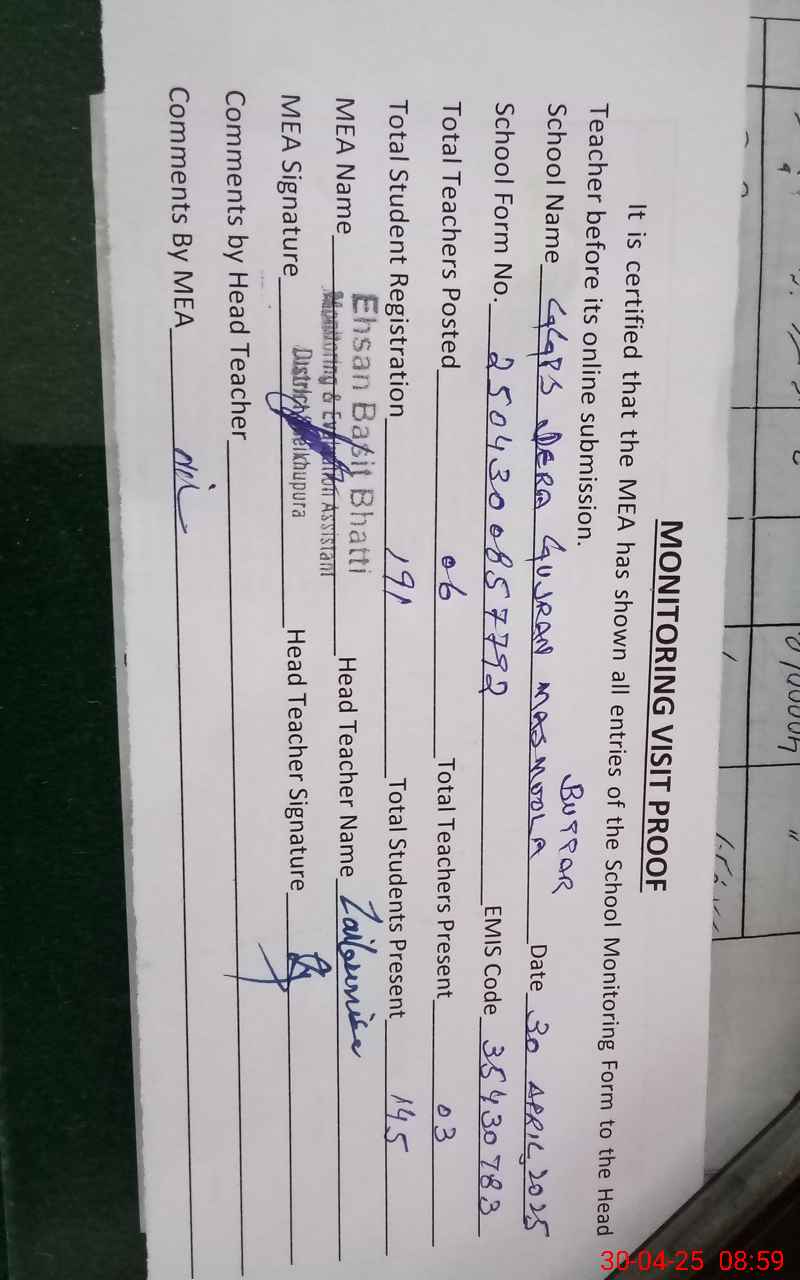 MONITORING VISIT PROOF
It is certified that the MEA has shown all entries of the School Monitoring Form to the Head
Teacher before its online submission.
BUTTAR
School Name GGPS DERA GUJRAN Date 30 APRIL, 2025
School Form No. 2504300857792 EMIS Code 35430783
Total Teachers Posted 06 Total Teachers Present 03
Total Student Registration 191 Total Students Present 145
MEA Name Ehsan Basit Bhatti Head Teacher Name Zaibunnisa
Monitoring & Evaluation Assistant
District Sheikhupura
MEA Signature Head Teacher Signature
Comments by Head Teacher
Comments By MEA Nil
30-04-25 08:59